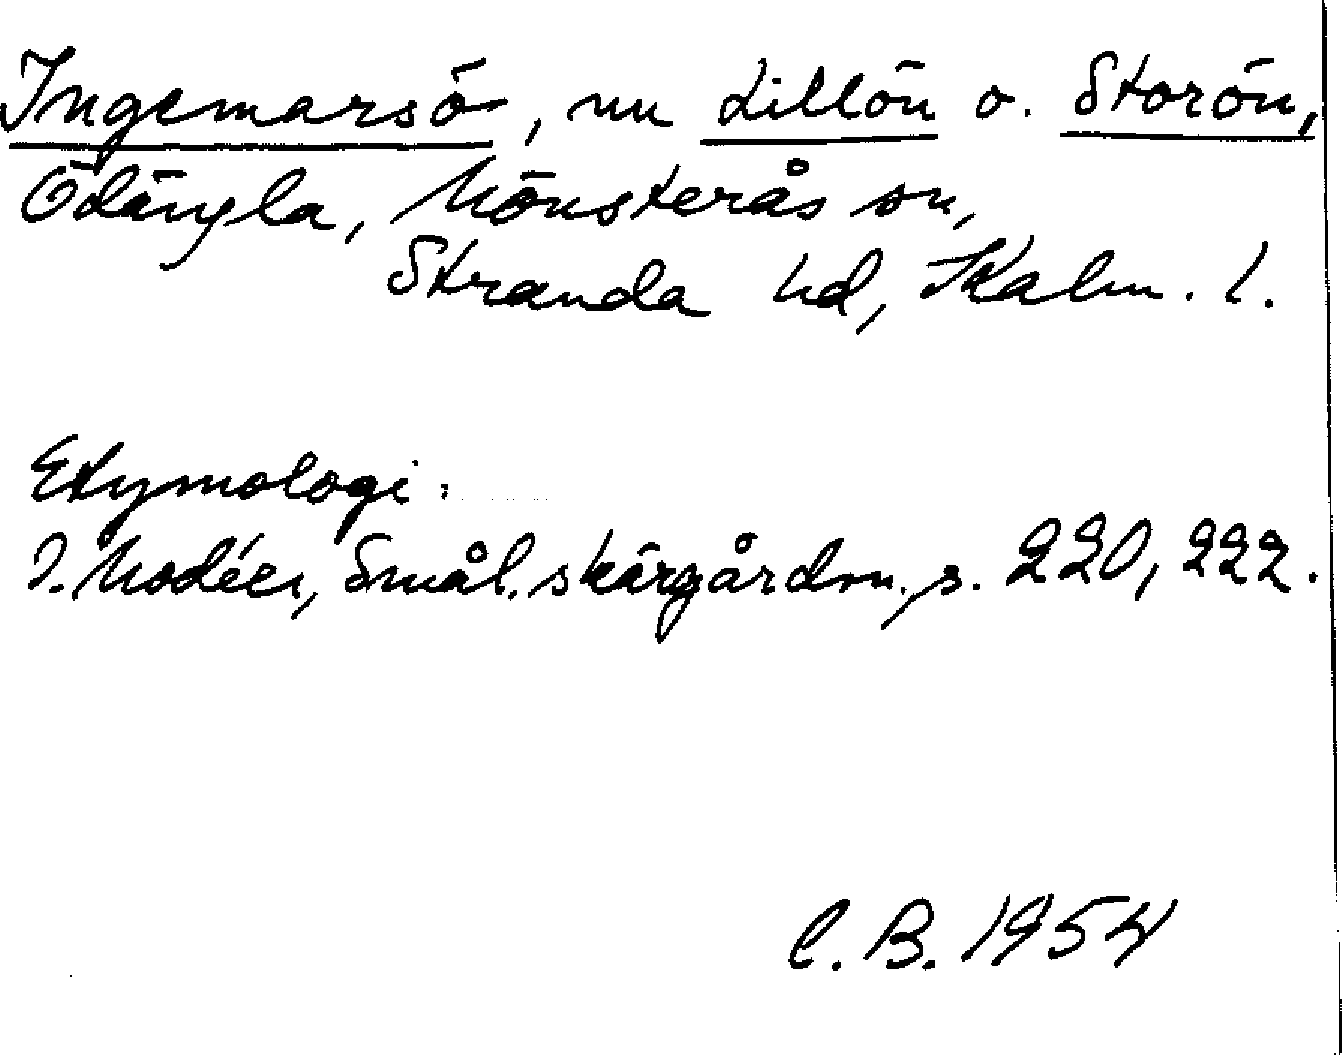 Ingemarsö, nu Lillön o. Storön,
Ödängla, Mönsterås sn,
Stranda hd, Kalm. l.
Etymologi.
I. Modéer, Smål. skärgårdsn., s. 220, 222.
C. B. 1954